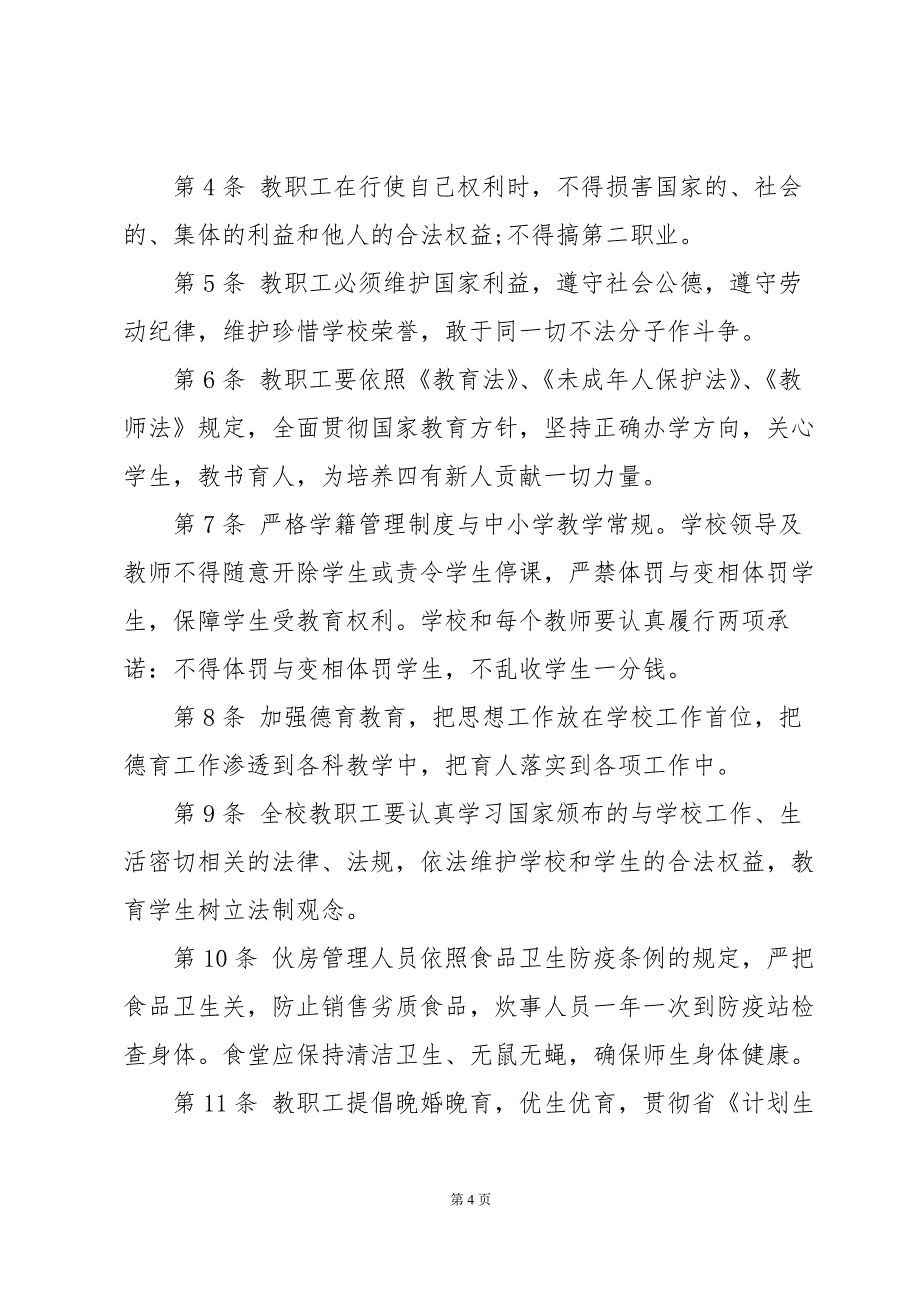 第4条 教职工在行使自己权利时，不得损害国家的、社会
的、集体的利益和他人的合法权益;不得搞第二职业。
第5条 教职工必须维护国家利益，遵守社会公德，遵守劳
动纪律，维护珍惜学校荣誉，敢于同一切不法分子作斗争。
第6条 教职工要依照《教育法》、《未成年人保护法》、《教
师法》规定，全面贯彻国家教育方针，坚持正确办学方向，关心
学生，教书育人，为培养四有新人贡献一切力量。
第7条 严格学籍管理制度与中小学教学常规。学校领导及
教师不得随意开除学生或责令学生停课，严禁体罚与变相体罚学
生，保障学生受教育权利。学校和每个教师要认真履行两项承
诺：不得体罚与变相体罚学生，不乱收学生一分钱。
第8条 加强德育教育，把思想工作放在学校工作首位，把
德育工作渗透到各科教学中，把育人落实到各项工作中。
第9条 全校教职工要认真学习国家颁布的与学校工作、生
活密切相关的法律、法规，依法维护学校和学生的合法权益，教
育学生树立法制观念。
第10条 伙房管理人员依照食品卫生防疫条例的规定，严把
食品卫生关，防止销售劣质食品，炊事人员一年一次到防疫站检
查身体。食堂应保持清洁卫生、无鼠无蝇，确保师生身体健康。
第11条 教职工提倡晚婚晚育，优生优育，贯彻省《计划生
第 4 页